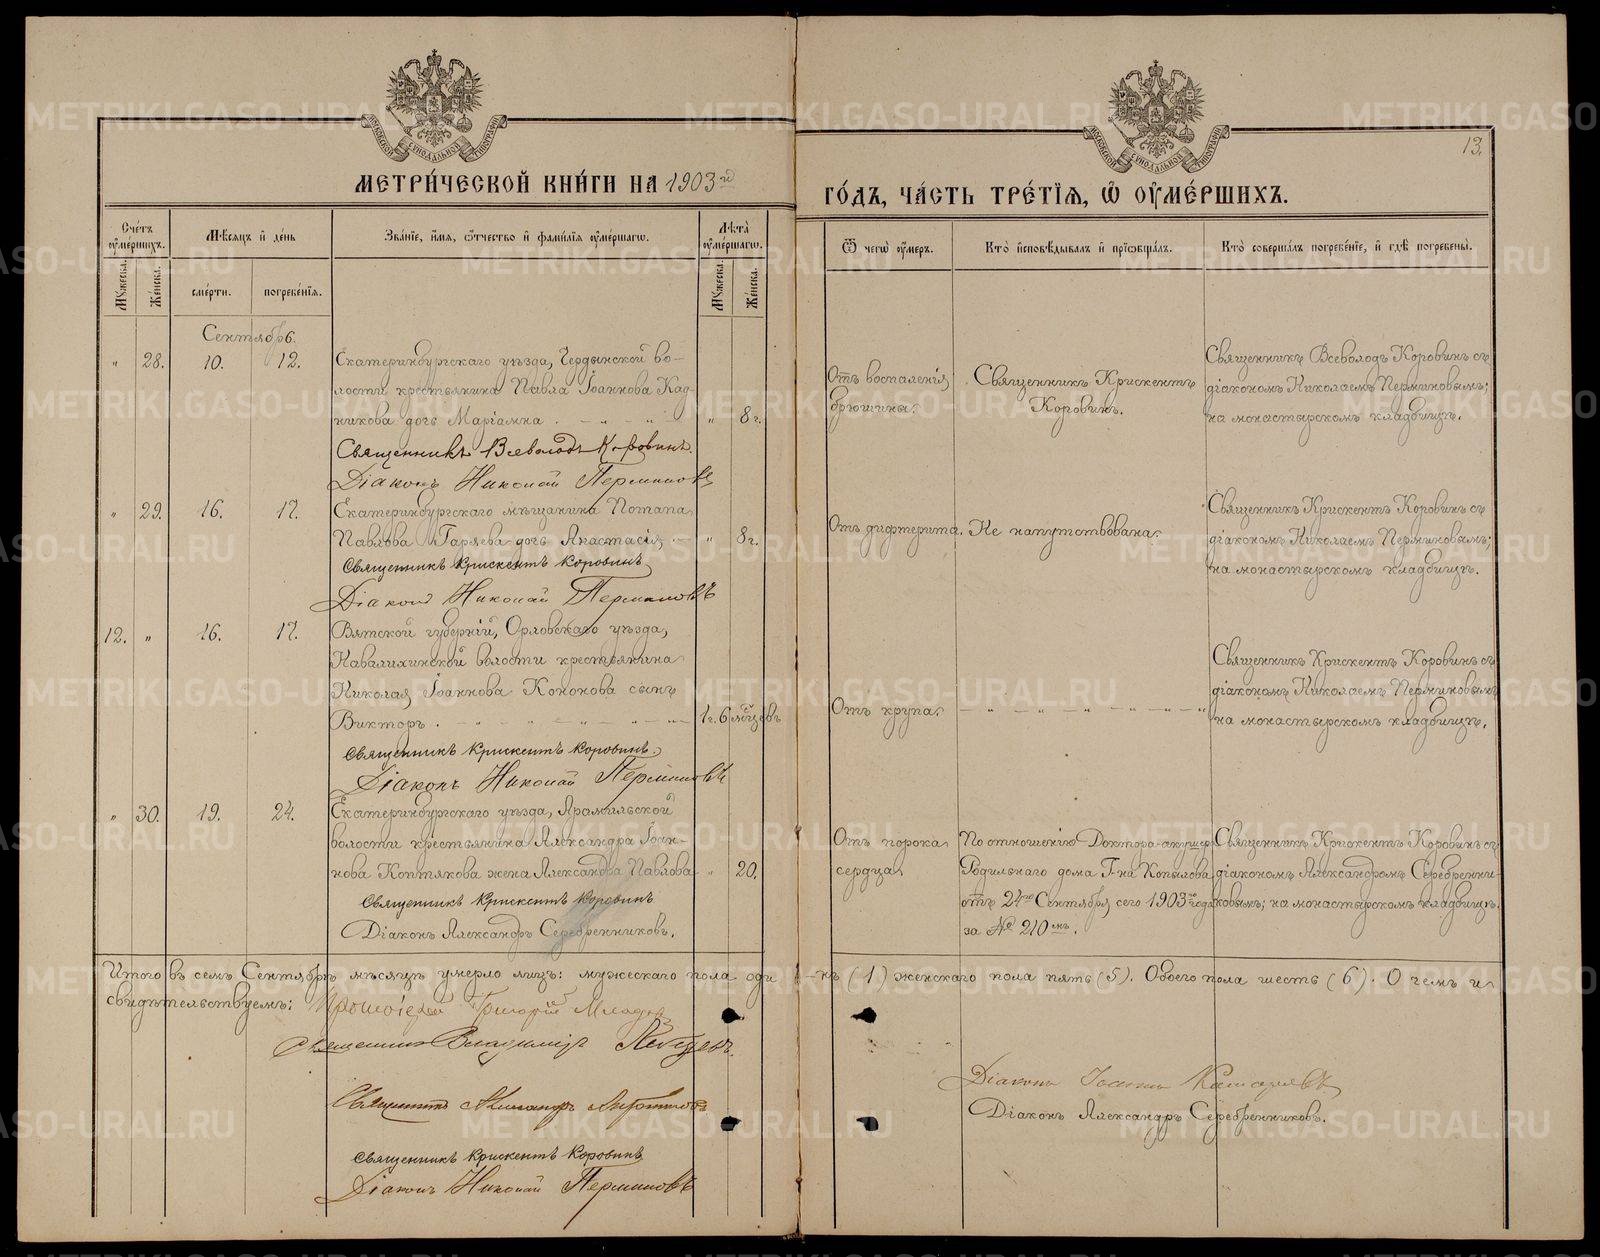 МЕТРИ́ЧЕСКОЙ КНИ́ГИ НА 1903 й
ГО́ДЪ, ЧА́СТЬ ТРЕ́ТІЯ, Ѿ ОУМЕ́РШИХЪ.
13.
МОСКОВСКОЙ СѴНОДАЛЬНОЙ ТИПОГРАФІИ
МОСКОВСКОЙ СѴНОДАЛЬНОЙ ТИПОГРАФІИ
Сче́тъ оуме́ршихъ.
Мѣсяцъ и де́нь
Зва́ніе, и́мя, ѻ́тчество и фами́лія оуме́ршагѡ.
Лѣта̀ оуме́ршагѡ.
Ѿ чегѡ̀ оу́меръ.
Кто̀ исповѣ́дывалъ и пріѡбща́лъ.
Кто̀ соверша́лъ погребе́ніе, и гдѣ̀ погребены̀.
Мꙋ́жеска.
Же́нска.
сме́рти.
погребе́нія.
Мꙋ́жеска.
Же́нска.
Сентябрь.
" 28. 10. 12. Екатеринбургскаго уѣзда, Чердынской во-
лости крестьянина Павла Іоаннова Кад-
никова дочь Маріамна . – " – " " 8 г.
Священникъ Всеволодъ Коровинъ.
Діаконъ Николай Перминовъ
Отъ воспаленія
брюшины.
Священникъ Крискентъ
Коровинъ.
Священникъ Всеволодъ Коровинъ съ
діакономъ Николаемъ Перминовымъ;
на монастырскомъ кладбищѣ.
" 29. 16. 17. Екатеринбургскаго мѣщанина Потапа
Павлова Гаряева дочь Анастасія – " 8 г.
Священникъ Крискентъ Коровинъ
Діаконъ Николай Перминовъ
Отъ дифтерита. Не напутствована.
Священникъ Крискентъ Коровинъ съ
діакономъ Николаемъ Перминовымъ;
на монастырскомъ кладбищѣ.
12. " 16. 17. Вятской губерніи, Орловскаго уѣзда,
волости крестьянина
Николая Іоаннова Кононова сынъ
Викторъ . – " – " – " – " – 1 г. 6 мѣсцевъ
Священникъ Крискентъ Коровинъ.
Діаконъ Николай Перминовъ
Отъ крупа. – " – " – " – " – "
Священникъ Крискентъ Коровинъ съ
діакономъ Николаемъ Перминовымъ
на монастырскомъ кладбищѣ.
" 30. 19. 24. Екатеринбургскаго уѣзда, Арамильской
волости крестьянина Александра Іоан-
нова Коптякова жена Александра Павлова " 20.
Священникъ Крискентъ Коровинъ.
Діаконъ Александръ Серебренниковъ.
Отъ порока
сердца.
По отношенію Доктора-акушера
Родильнаго дома Г-на Копылова
отъ 24го Сентября сего 1903го года
за № 210мъ.
Священникъ Крискентъ Коровинъ съ
діакономъ Александромъ Серебренни-
ковымъ; на монастырскомъ кладбищѣ.
Итого въ семъ Сентябрѣ мѣсяцѣ умерло лицъ: мужескаго пола оди-нъ (1) женскаго пола пять (5). Обоего пола шесть (6). О чемъ и
свидѣтельствуемъ: Протоіерей Григорій
Священникъ Владиміръ
Священникъ Александръ
Священникъ Крискентъ Коровинъ
Діаконъ Николай Перминовъ
Діаконъ Іоаннъ
Діаконъ Александръ Серебренниковъ.
METRIKI.GASO-URAL.RU